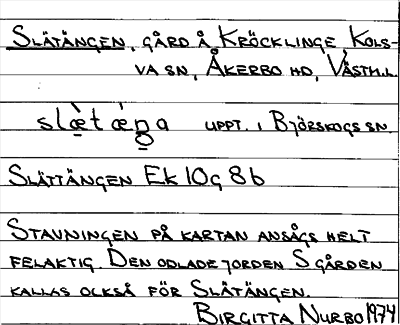 SLÄTÄNGEN, GÅRD Å KRÖCKLINGE, KOLS-
VA SN, ÅKERBO HD, VÄSTM.L.
slæ̀tæ̀ŋa UPPT. I BJÖRSKOGS SN.
SLÄTTÄNGEN EK 10G 8b
STAVNINGEN PÅ KARTAN ANSÅGS HELT
FELAKTIG. DEN ODLADE JORDEN S GÅRDEN
KALLAS OCKSÅ FÖR SLÄTÄNGEN.
BIRGITTA NURBO 1974